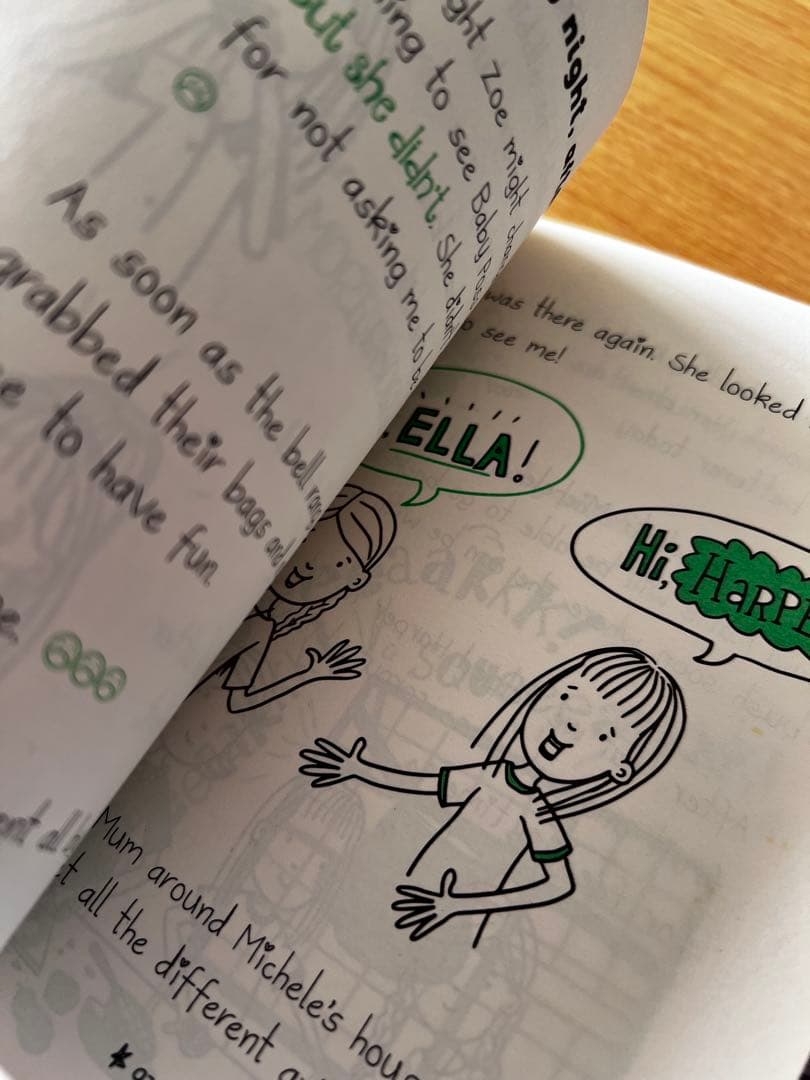 night,
ght Zoe might
ing to see Baby
but she didn't. She
for not asking me to
As soon as the bell rang
grabbed their bags and
to have fun.
was there again. She looked
see me!
ELLA!
Hi, HARPE
Mum around Michele's
all the different